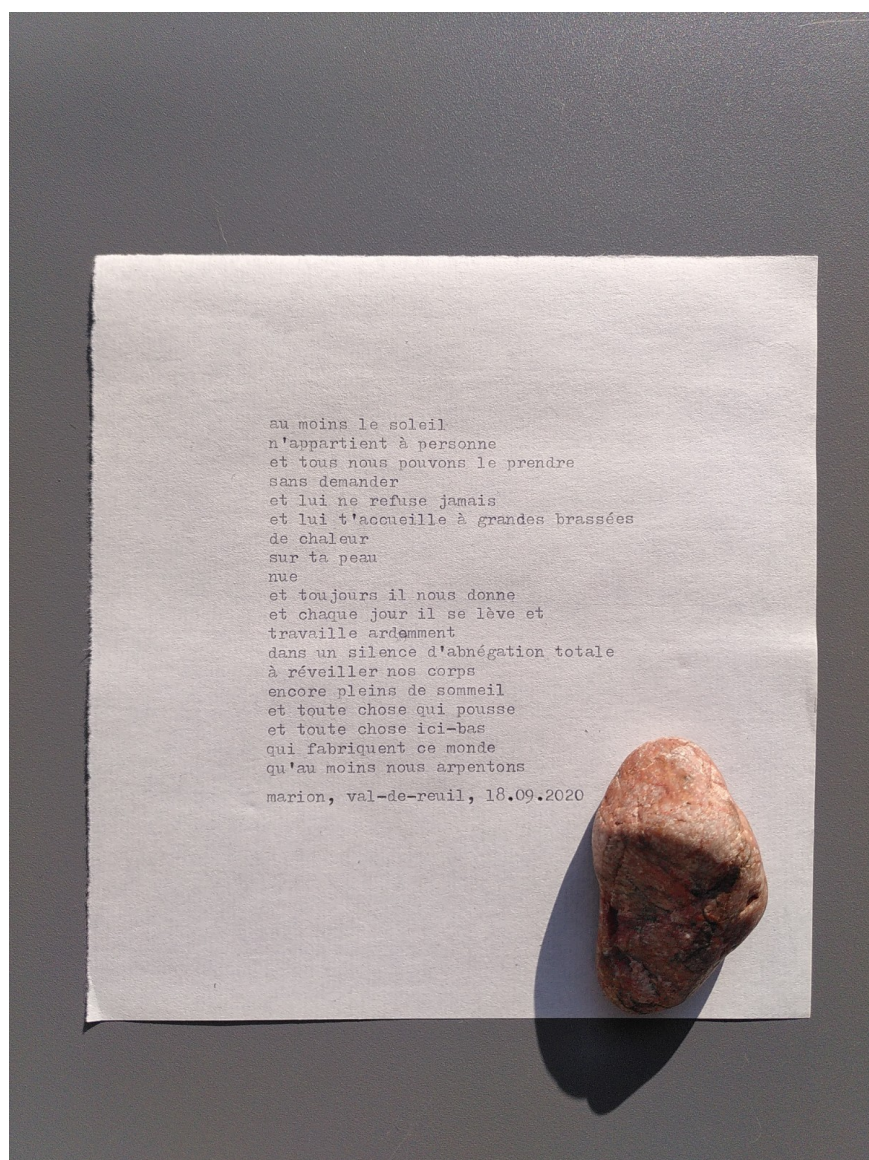 au moins le soleil
n'appartient à personne
et tous nous pouvons le prendre
sans demander
et lui ne refuse jamais
et lui t'accueille à grandes brassées
de chaleur
sur ta peau
nue
et toujours il nous donne
et chaque jour il se lève et
travaille ardemment
dans un silence d'abnégation totale
à réveiller nos corps
encore pleins de sommeil
et toute chose qui pousse
et toute chose ici-bas
qui fabriquent ce monde
qu'au moins nous arpentons
marion, val-de-reuil, 18.09.2020